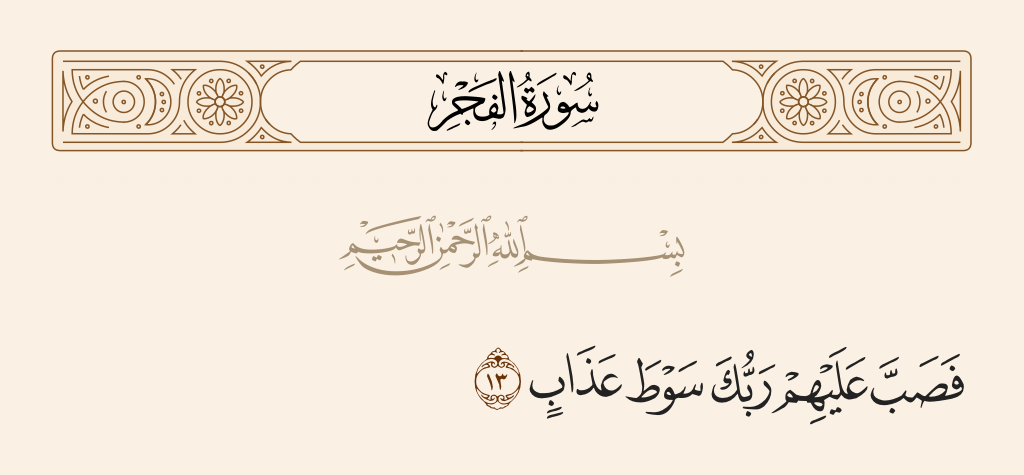 سُورَةُ الفَجْرِ
بِسْمِ ٱللَّهِ ٱلرَّحْمَٰنِ ٱلرَّحِيمِ
فَصَبَّ عَلَيْهِمْ رَبُّكَ سَوْطَ عَذَابٍ ١٣